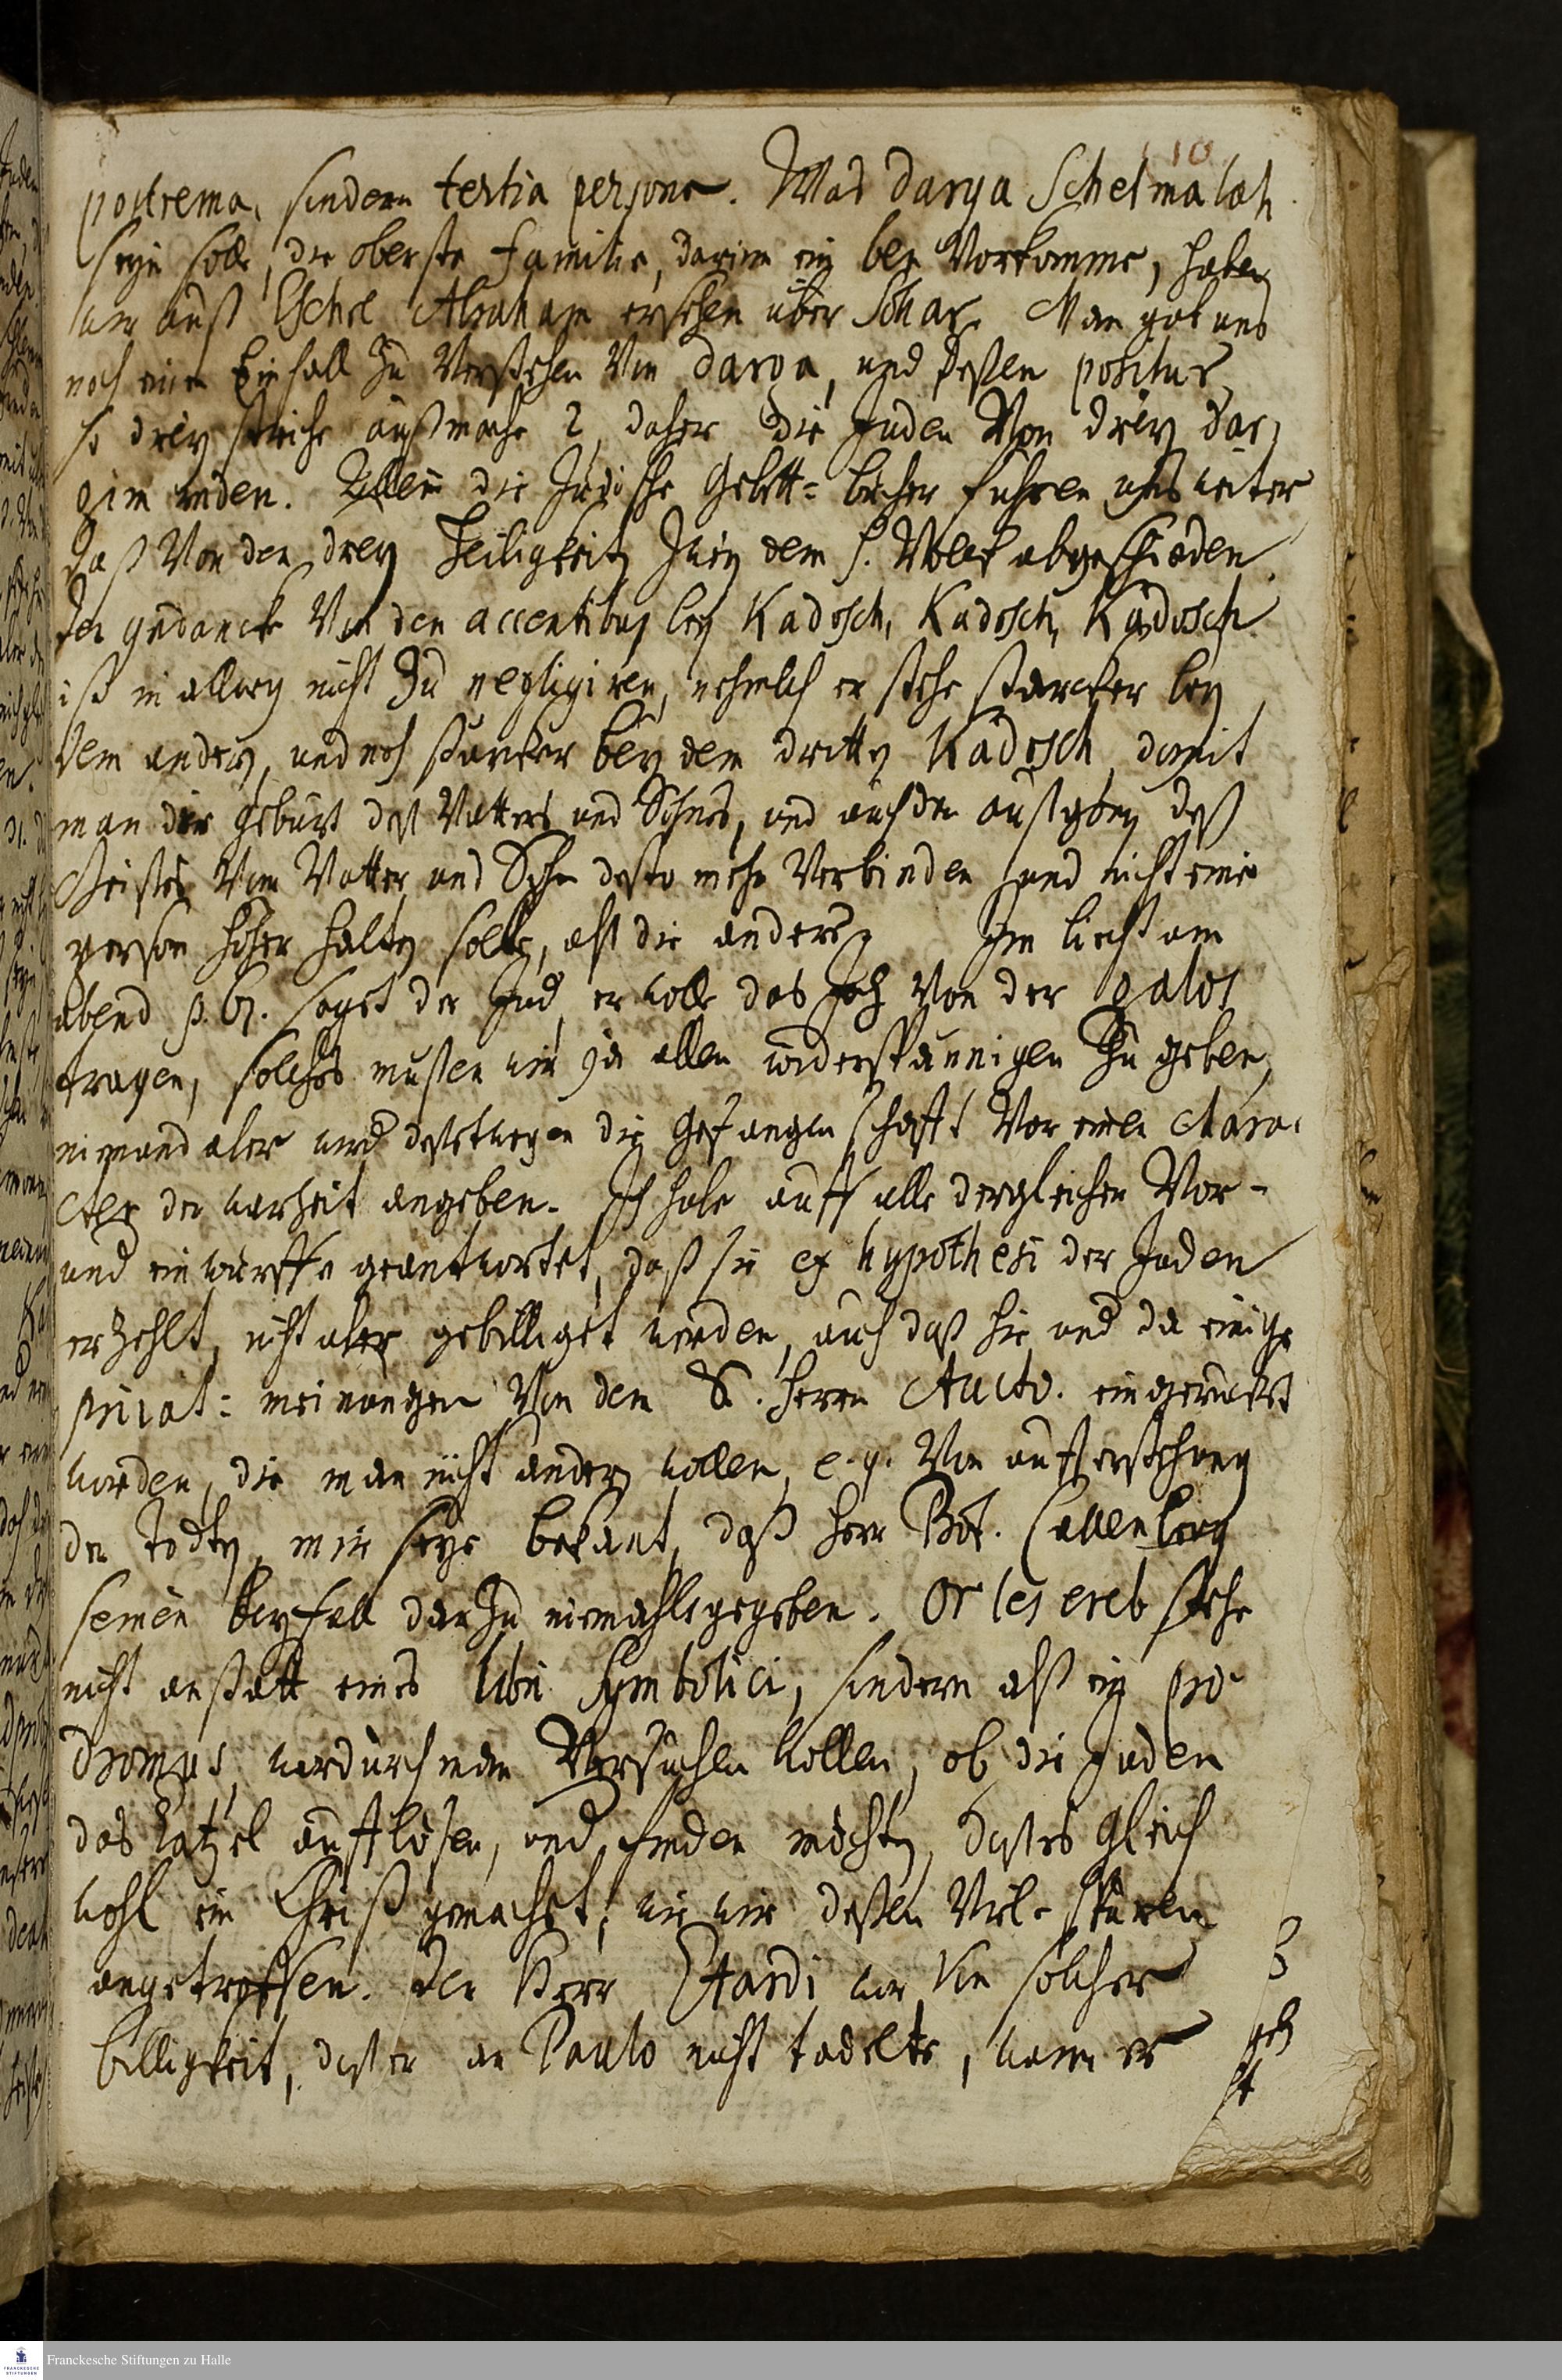 10
postrema, sondern tertia persona. Was darga Schelmalah
seyn solle, die oberste familie, darinn ein ben Vorkomme, haben
wir auß Eschel Abraham ersehen über Sohar. Man gab uns
noch einen Einfall zu Verstehen Von darga, und deßen positur,
so drey striche außmache, daher die Juden Von drey dar¬
gim reden. Allein die Jüdische Gebett= bücher führen uns weiter
daß Von den drey Heiligkeiten dem h. Volck abgeschieden
der gedancke Von den accentibus bey Kadosch, Kadosch, Kadosch
ist in allweg nicht zu negligiren, nehmlich er stehe starcker bey
dem andern, und noch starcker bey dem dritten Kadosch, damit
man die geburt deß Vatters und Sohnes, und auch den außgang deß
Geistes Vom Vatter und Sohn desto mehr Verbinden und nicht eine
person höher halten solle, alß die andere. Im liecht am
abend p. 67. saget der Jud, er wolle das Joch Von der galos
tragen, solches mußen wir ja allen widerspännigen zu geben,
niemand aber wird deßetwegen die Gefangenschafft Vor einen Chara¬
cter der warheit angeben. Ich habe auff alle dergleichen Vor-
und einwürffe geantwortet, daß sie ex hypothesi der Juden
erzehlt, nicht aber gebilliget werden, auch daß hie und da einige
privat= meinungen Von dem S. Herrn Aucto. eingerückt
worden, die man nicht ändern wollen, e. g. Von aufferstehung
der Todten, mir seye bekant, daß Herr Prof. Callenberg
seinen beyfall darzu niemahls gegeben. Or les ereb stehe
nicht anstatt eines libri Symbolici, sondern alß ein pro¬
dromus, wordurch man Versuchen wollen, ob die Juden
das Rätzel aufflösen, und finden möchten, daß es gleich
wohl ein Christ gemacht, wie wir deßen Viele spuren
angetroffen. Der Herr Etardi war Von solcher
billigkeit, daß er an Paulo nicht tadelte, wann er
Franckesche Stiftungen zu Halle